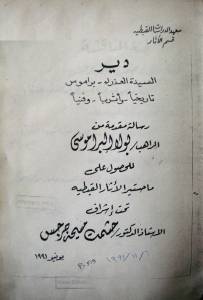 معهد الدراسات القبطية
قسم الآثار
دير
السيدة العذراء - براموس
تاريخياً - وأثرياً - وفنياً
رسالة مقدمة من
الراهب/ بولا البراموسى
للحصول على
ماجستير الآثار القبطية
تحت إشراف
الاستاذ الدكتور/ حشمت مسيحة جرجس
يونيو ١٩٩١